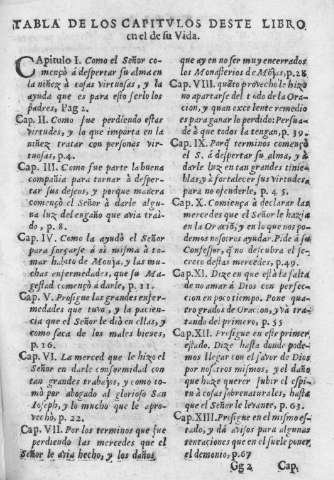 TABLA DE LOS CAPITVLOS DESTE LIBRO,
en el de su Vida.
CApitulo I. Como el Señor co-
mençò à despertar su alma en
la niñez à cosas virtuosas, y la
ayuda que es para esto serlo los
padres, Pag 2.
Cap. II. Como fue perdiendo estas
virtudes, y lo que importa en la
niñez tratar con personas vir-
tuosas, p.4.
Cap. III. Como fue parte la buena
compañia para tornar à desper-
tar sus deseos, y porque manera
començò el Señor à darle algu-
na luz del engaño que avia trai-
do, p. 8.
Cap. IV. Como la ayudò el Señor
para forçarse à si misma à to-
mar habito de Monja, y las mu-
chas enfermedades, que su Ma-
gestad començò à darle, p. 11.
Cap. V. Prosigue las grandes enfer-
medades que tuvo, y la pacien-
cia que el Señor le diò en ellas, y
como saca de los males bienes,
p. 16.
Cap. VI. La merced que le hizo el
Señor en darle conformidad con
tan grandes trabajos, y como to-
mò por abogado al glorioso San
Ioseph, y lo mucho que le apro-
vechò, p. 22,
Cap. VII. Por los terminos que fue
perdiendo las mercedes que el
Señor le avia hecho, y los daños
que ay en no ser muy encerrados
los Monasterios de Mõjas, p.28
Cap. VIII. quãto provecho le hizo
no apartarse del todo de la Ora-
cion, y quan excelente remedio
es para ganar lo perdido: Persua-
de à que todos la tengan, p. 39.
Cap. IX. Porq̃ terminos començò
el S. à despertar su alma, y à
darle luz en tan grandes tinie-
blas, y à fortalecer sus virtudes,
para no ofenderle, p. 45.
Cap. X. Comiença à declarar las
mercedes que el Señor le hazia
en la Oraciõ, y en lo que nos po-
demos nosotros ayudar. Pide à su
Confessor, q̃ no descubra el se-
creto destas mercedes, p.49.
Cap. XI. Dize en que està la falta
de no amar à Dios con perfec-
cion en poco tiempo. Pone qua-
tro grados de Oracion, y và tra-
tando del primero, p. 55
Cap. XII. Prosigue en este primer
estado. Dize hasta donde pode-
mos llegar con el favor de Dios
por nosotros mismos, y el daño
que haze querer subir el espiri-
tu à cosas sobrenaturales, hasta
que el Señor le levante, p. 63.
Cap. XIII. Prosigue en el mismo es-
tado, y dà avisos para algunas
tentaciones que en el suele poner
el demonio, p.67
Gg 2 Cap.